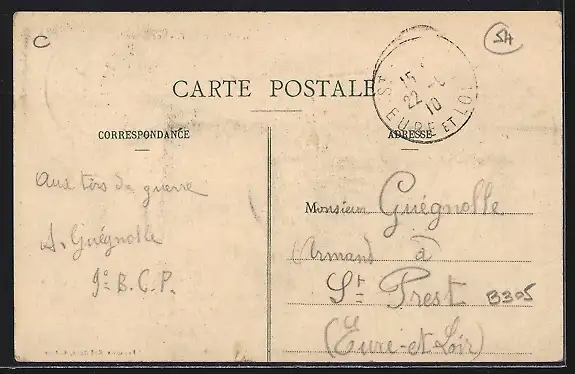 C
SH
CARTE POSTALE
15
22 -8
10
EURE ET LOI
CORRESPONDANCE
ADRESSE
Aux tirs de guerre
A. Guégnolle
9e B.C.P.
Monsieur Guégnolle
(Armand) à
St Prest
B305
(Eure-et-Loir)